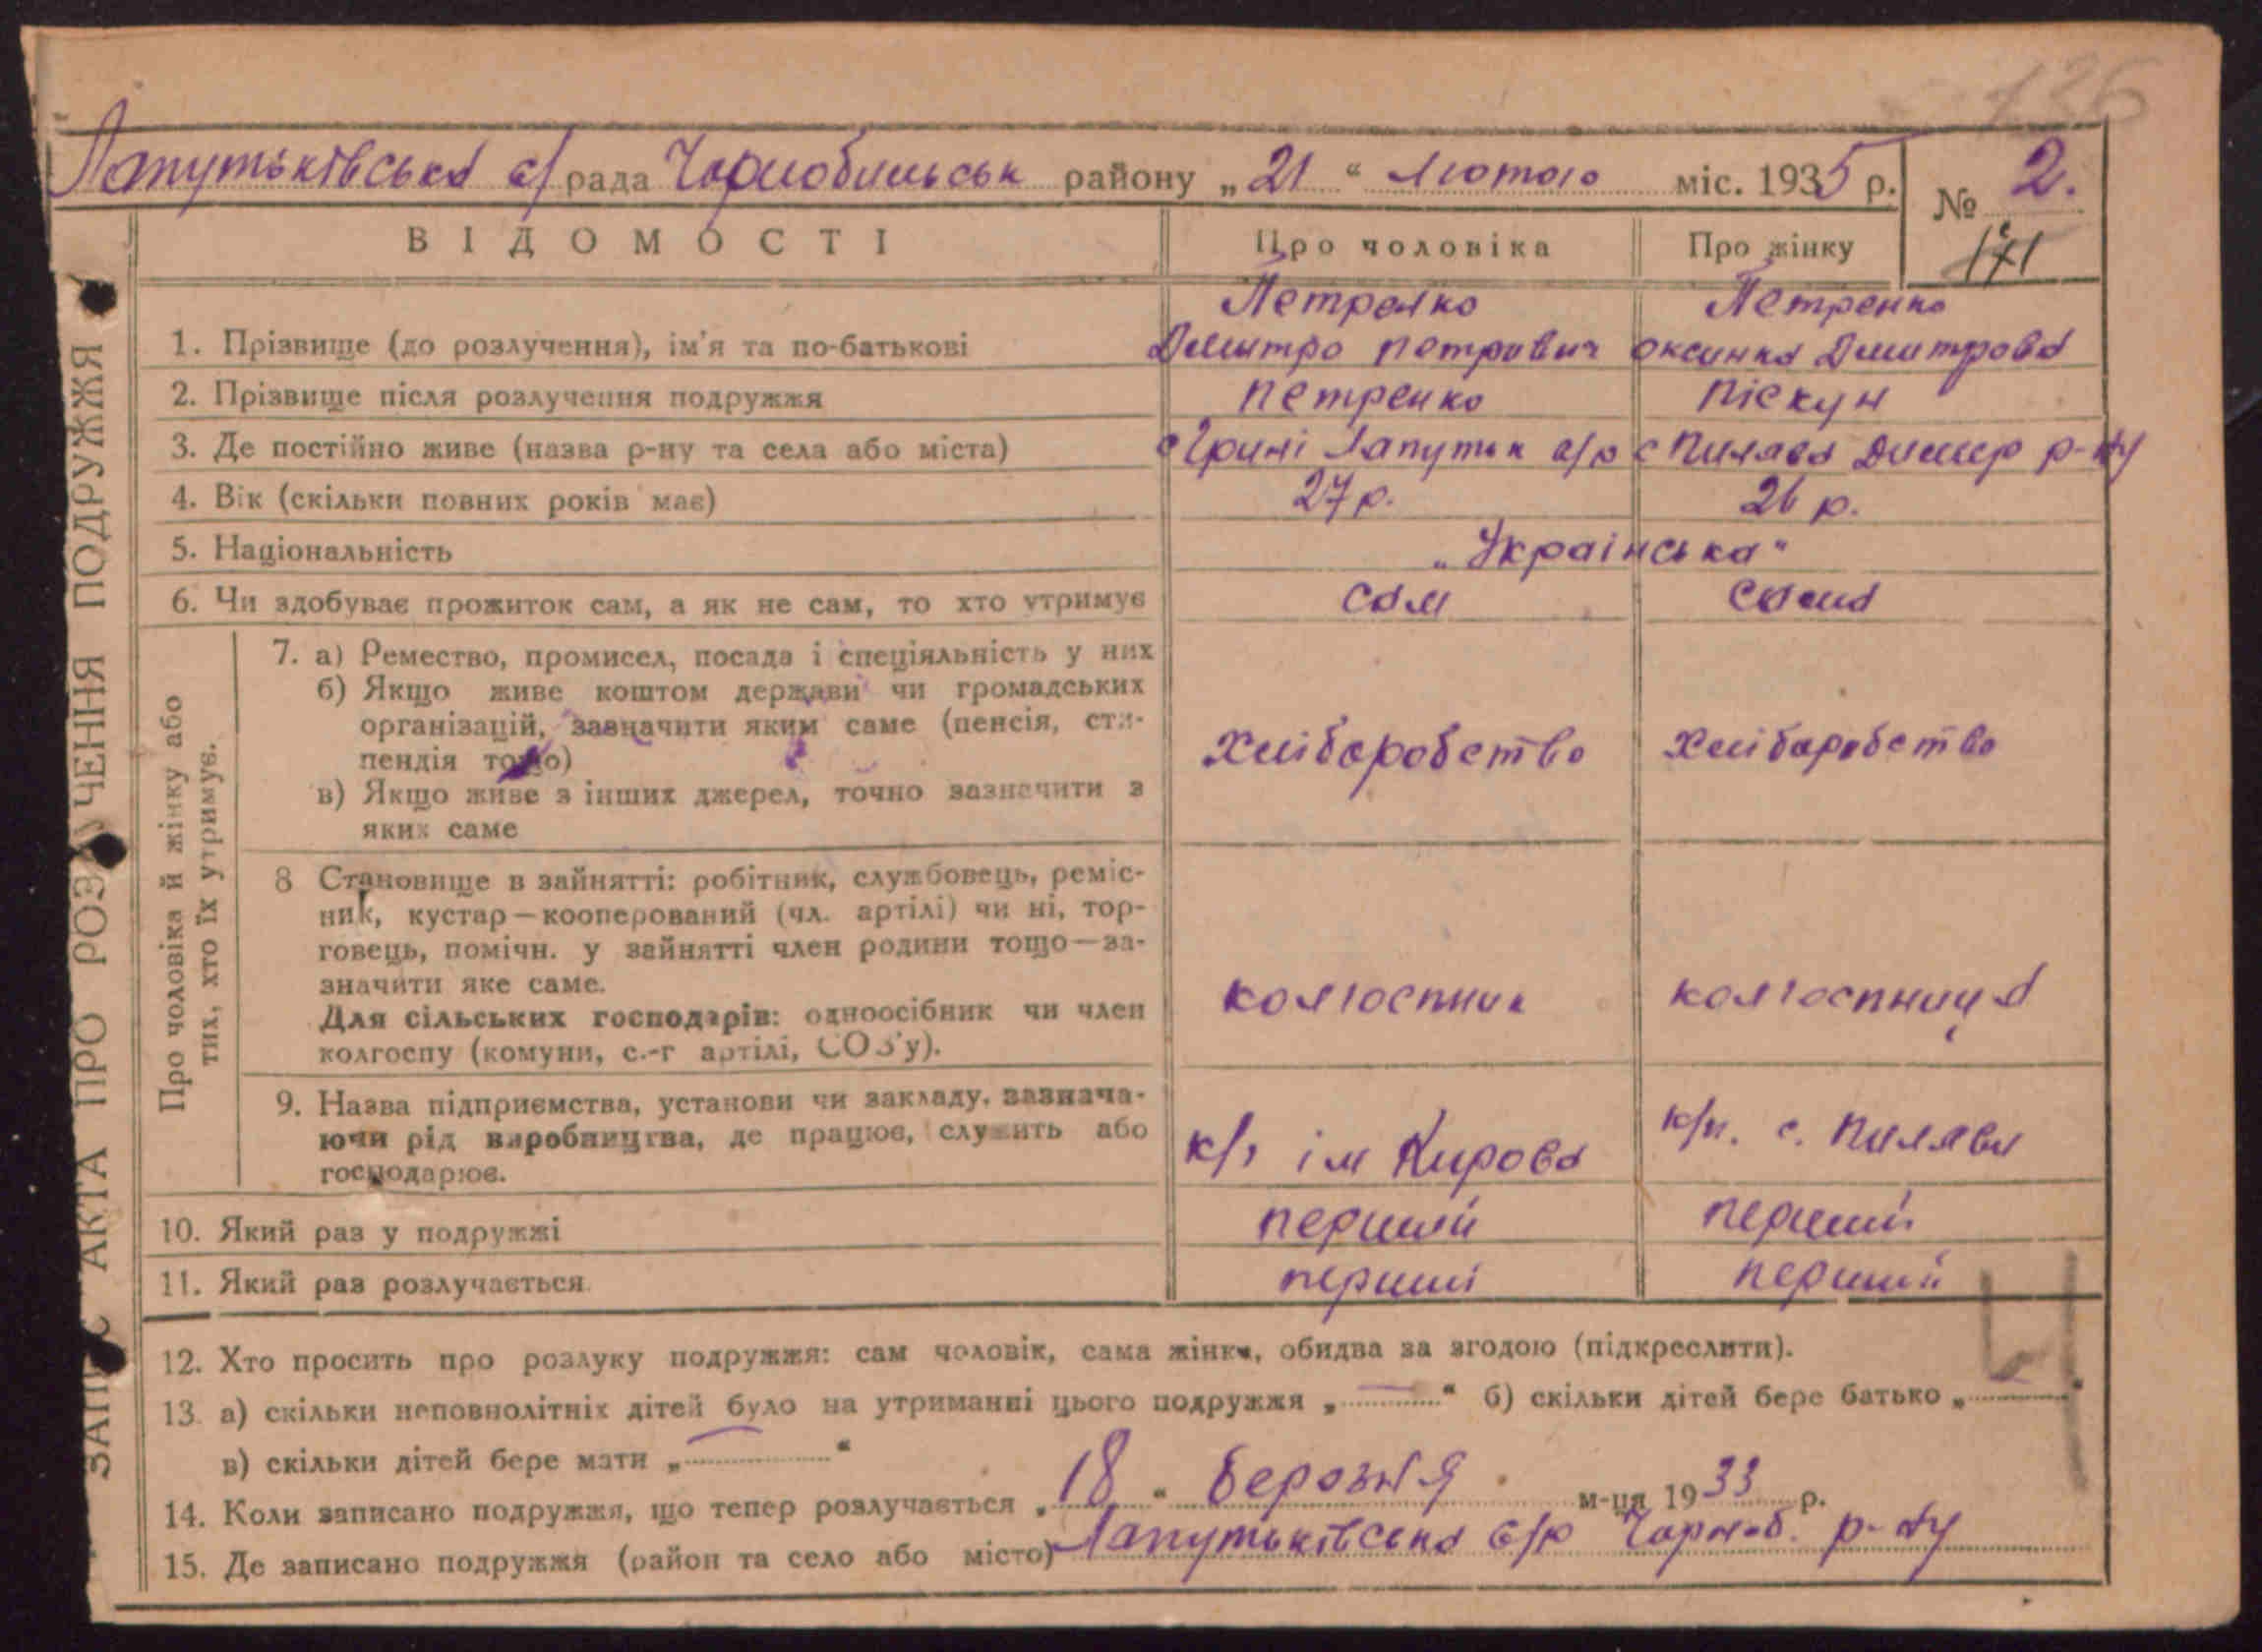 136
Лапутьківська с/рада Чорнобильськ району „21“ Лютого міс. 1935 р.
№ 2.
171
ВІДОМОСТІ
Про чоловіка
Про жінку
1. Прізвище (до розлучення), ім'я та по-батькові
Петренко
Дмитро Петрович
Петренко
Оксинка Дмитрова
2. Прізвище після розлучення подружжя
Петренко
Піскун
3. Де постійно живе (назва р-ну та села або міста)
с Грині Лапутьк с/р
с Пилява Димер р-ну
4. Вік (скільки повних років має)
27 р.
26 р.
5. Національність
„Українська"
6. Чи здобуває прожиток сам, а як не сам, то хто утримує
сам
сама
Про чоловіка й жінку або
тих, хто їх утримує.
7. а) Ремество, промисел, посада і спеціяльність у них
б) Якщо живе коштом держави чи громадських
організацій, зазначити яким саме (пенсія, сти-
пендія тощо)
в) Якщо живе з інших джерел, точно зазначити з
яких саме
хліборобство
хліборобство
8 Становище в зайнятті: робітник, службовець, реміс-
ник, кустар—кооперований (чл. артілі) чи ні, тор-
говець, помічн. у зайнятті член родини тощо—за-
значити яке саме.
Для сільських господарів: одноосібник чи член
колгоспу (комуни, с.-г артілі, СОЗ'у).
колгоспник
колгоспниця
9. Назва підприємства, установи чи закладу, зазнача-
ючи рід виробництва, де працює, служить або
господарює.
к/г ім Кирова
с. Пиляви
10. Який раз у подружжі
перший
перший
11. Який раз розлучається
перший
перший
12. Хто просить про розлуку подружжя: сам чоловік, сама жінка, обидва за згодою (підкреслити).
13. а) скільки неповнолітніх дітей було на утриманні цього подружжя „—“ б) скільки дітей бере батько „“
в) скільки дітей бере мати „—“
14. Коли записано подружжя, що тепер розлучається „18“ березня м-ця 1933 р.
15. Де записано подружжя (район та село або місто) Лапутьківська с/р Чорноб. р-ну
ЗАПИС АКТА ПРО РОЗЛУЧЕННЯ ПОДРУЖЖЯ